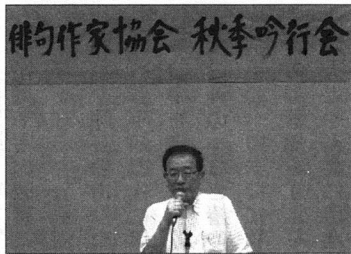 俳句作家協会 秋季吟行会